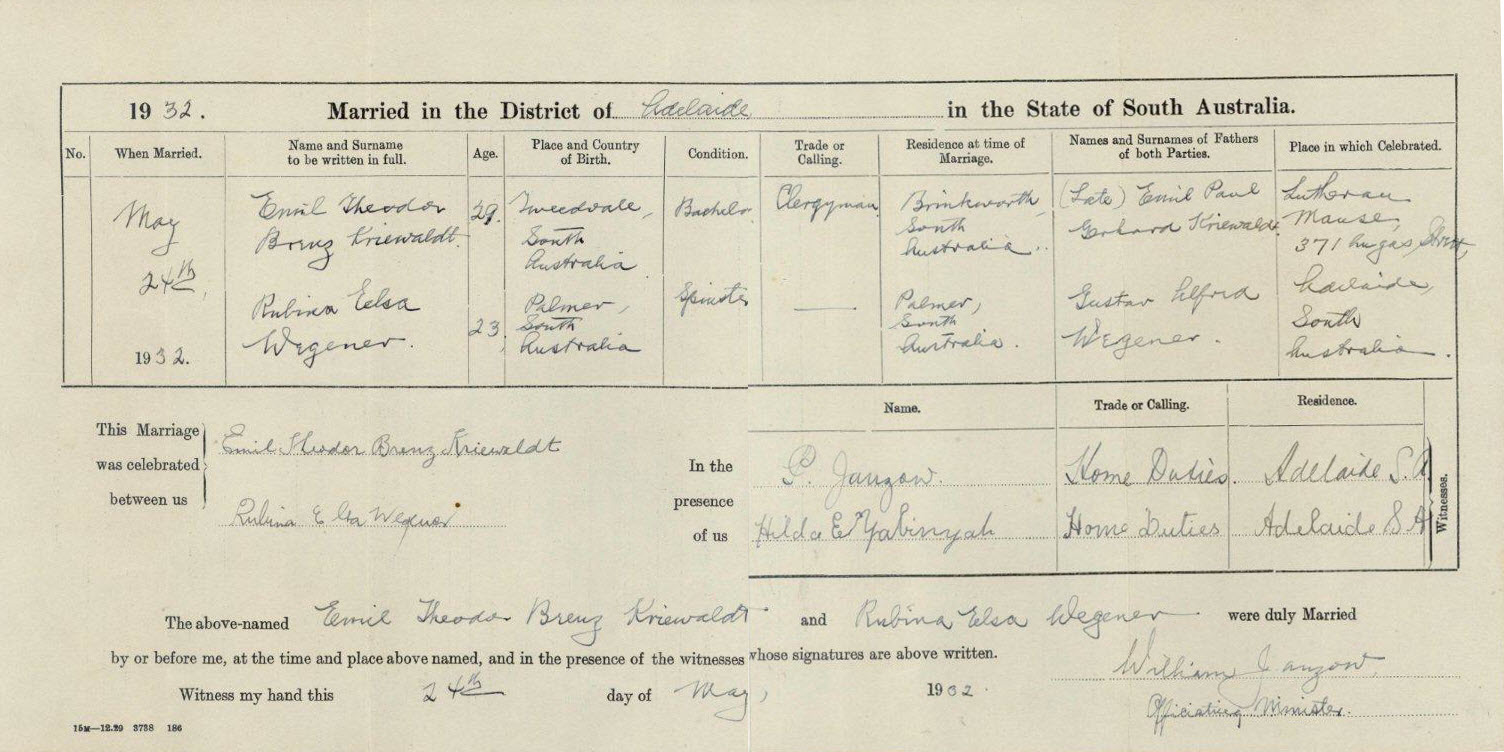 1932. Married in the District of Adelaide in the State of South Australia.
No. When Married. Name and Surname to be written in full. Age. Place and Country of Birth. Condition. Trade or Calling. Residence at time of Marriage. Names and Surnames of Fathers of both Parties. Place in which Celebrated.
May
24th,
1932.
Emil Theodor
Brenz Kriewaldt
29.
Tweedvale,
South
Australia
Bachelor
Clergyman
Brinkworth,
South
Australia.
(Late) Emil Paul
Gerhard Kriewaldt
Lutheran
Manse,
371 Angas Street,
Adelaide,
South
Australia.
Rubina Elsa
Wegener.
23.
Palmer,
South
Australia
Spinster
Palmer,
South
Australia.
Gustav Alfred
Wegener.
This Marriage
was celebrated
between us
Emil Theodor Brenz Kriewaldt
Rubina Elsa Wegener
In the
presence
of us
Name. Trade or Calling. Residence.
P. Janzow. Home Duties. Adelaide S.A.
Hilda E Home Duties Adelaide S.A
Witnesses.
The above-named Emil Theodor Brenz Kriewaldt and Rubina Elsa Wegener were duly Married
by or before me, at the time and place above named, and in the presence of the witnesses whose signatures are above written.
Witness my hand this 24th day of May, 1932.
William Janzow,
Officiating Minister.
15M—12.29 3738 186